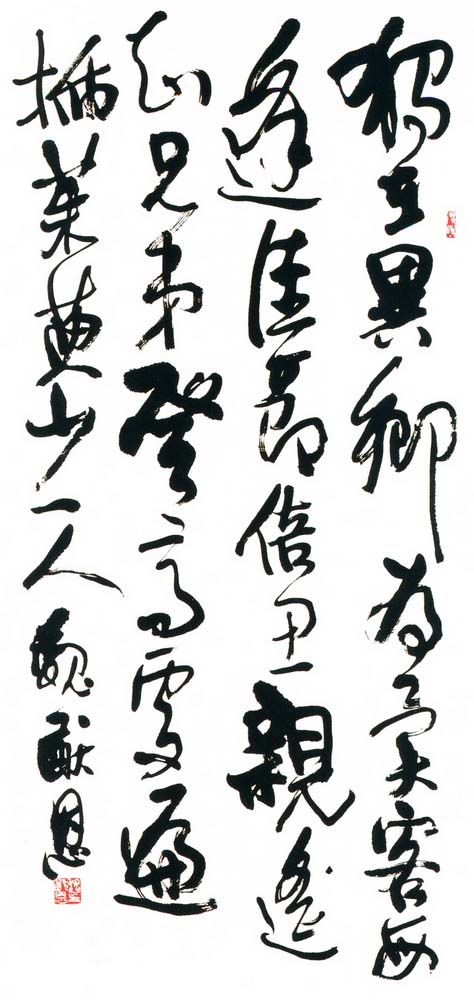 獨在異鄉為異客每
逢佳節倍思親遙
知兄弟登高處遍
插茱萸少一人 魏献恩